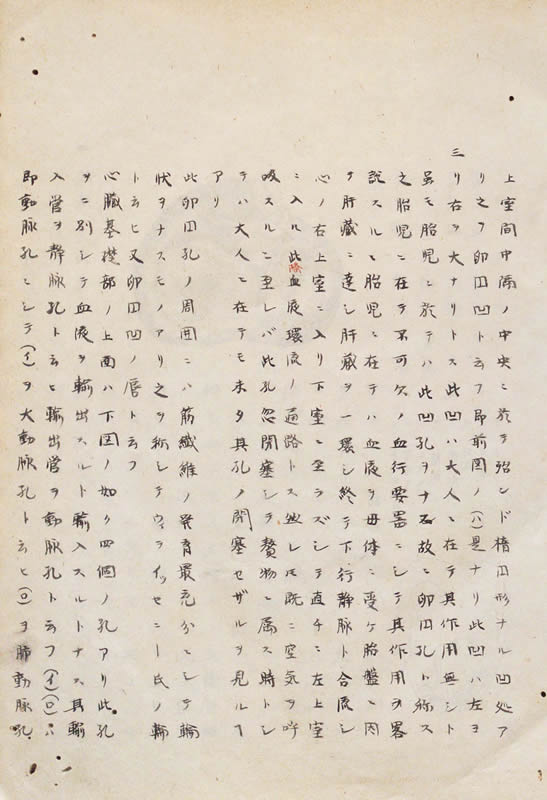 三
上室間中隔ノ中央ニ於テ殆ンド楕円形ナル凹処ア
リ之ヲ卵円凹ト云フ即前図ノ(ハ)是ナリ此凹ハ左ヨ
リ右ヲ大ナリトス此凹ハ大人ニ在テ其作用無シト
虽モ胎児ニ於テハ此凹孔ヲナス故ニ卵円孔ト称ス
之胎児ニ在テ不可欠ノ血行要器ニシテ其作用ヲ畧
説スルニ胎児ニ在テハ血液ヲ母体ニ受ケ胎盤ニ因
テ肝蔵ニ達シ肝蔵ヲ一環シ終テ下行静脉ト合底シ
心ノ右上室ニ入リ下室ニ至ラズシテ直チニ左上室
ニ入ル此際血液環流ノ通路トス然レ𪜈既ニ空気ヲ呼
吸スルニ至レバ此孔忽閉塞シテ贅物ニ属ス時トシ
テハ大人ニ在テモ未タ其孔ノ閉塞セザルヲ見ルヿ
アリ
此卵円孔ノ周囲ニハ筋纖維ノ発育最充分ニシテ輪
状ヲナスモノアリ之ヲ称シテウィライッセニー氏ノ輪
ト云ヒ又卵円凹ノ唇ト云フ
心臓基礎部ノ上面ハ下図ノ如ク四個ノ孔アリ此孔
ヲニ別シテ血液ヲ輸出スルト輸入スルトナス其輸
入管ヲ静脉孔ト云ヒ輸出管ヲ動脉孔ト云フ(イ)(ロ)ハ
即動脉孔ニシテ(イ)ヲ大動脉孔ト云ヒ(ロ)ヲ肺動脉孔